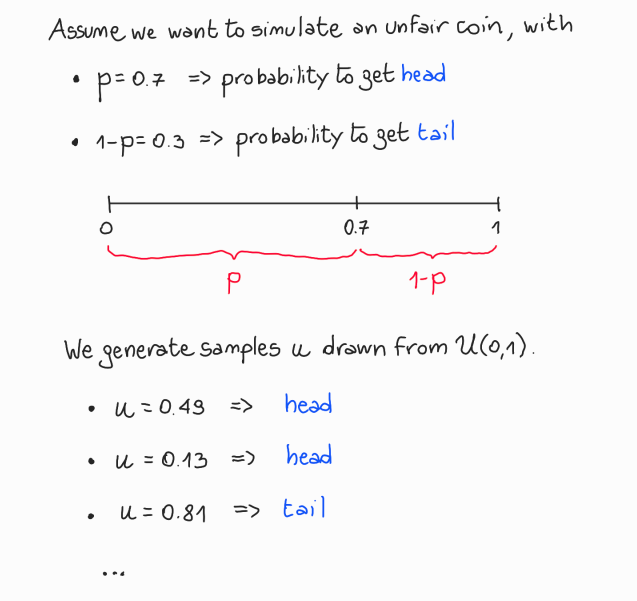 Assume we want to simulate an unfair coin, with
• p=0.7 => probability to get head
• 1-p=0.3 => probability to get tail
0 0.7 1
p 1-p
We generate samples u drawn from U(0,1).
• u=0.49 => head
• u=0.13 => head
• u=0.81 => tail
...